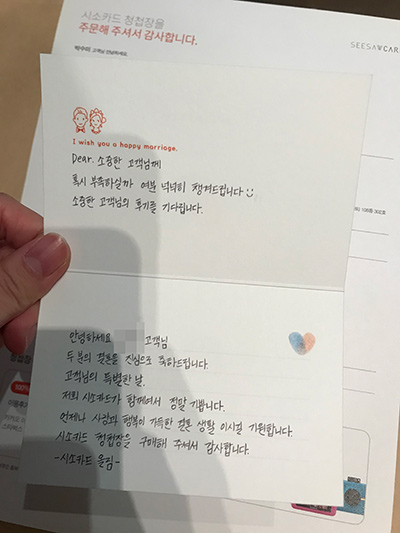 시소카드 청첩장을
주문해 주셔서 감사합니다.
고객님 안녕하세요.
SEESAWCAR
I wish you a happy marriage.
Dear. 소중한 고객님께
혹시 부족하실까 여분 넉넉히 챙겨드립니다
소중한 고객님의 후기를 기다립니다.
안녕하세요 고객님
두 분의 결혼을 진심으로 축하드립니다.
고객님의 특별한 날,
저희 시소카드가 함께여서 정말 기쁩니다.
언제나 사랑과 행복이 가득한 결혼 생활 이시길 기원합니다.
시소카드 청첩장을 구매해 주셔서 감사합니다.
-시소카드 올림-
100%